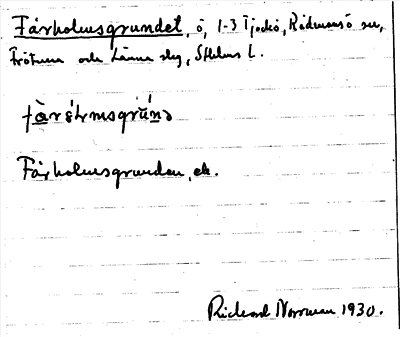 Fårholmsgrundet, ö, 1-3 Tjockö, Rådmansö sn,
Frötuna och Länna skg, Sthlms l.
Fårholmsgrunden, ek.
Rickard Norrman 1930.